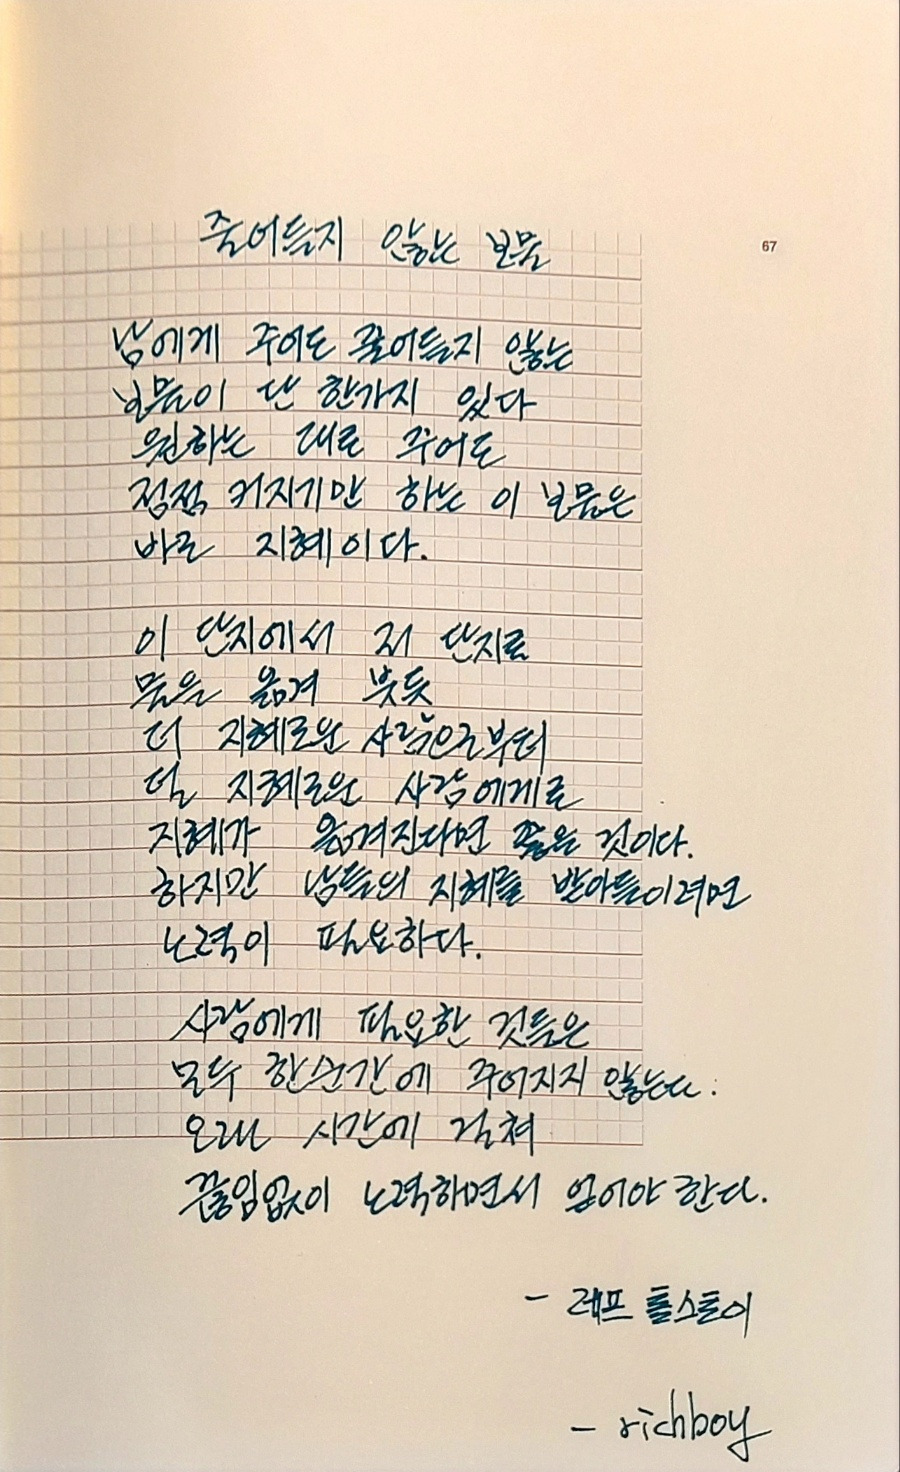 줄어들지 않는 보물
67
남에게 주어도 줄어들지 않는
보물이 단 한가지 있다
원하는 대로 주어도
점점 커지기만 하는 이 보물은
바로 지혜이다.
이 단지에서 저 단지로
물을 옮겨 붓듯
더 지혜로운 사람으로부터
덜 지혜로운 사람에게로
지혜가 옮겨진다면 좋을 것이다.
하지만 남들의 지혜를 받아들이려면
노력이 필요하다.
사람에게 필요한 것들은
모두 한순간에 주어지지 않는다.
오랜 시간에 걸쳐
끊임없이 노력하면서 얻어야 한다.
- 레프 톨스토이
- richboy